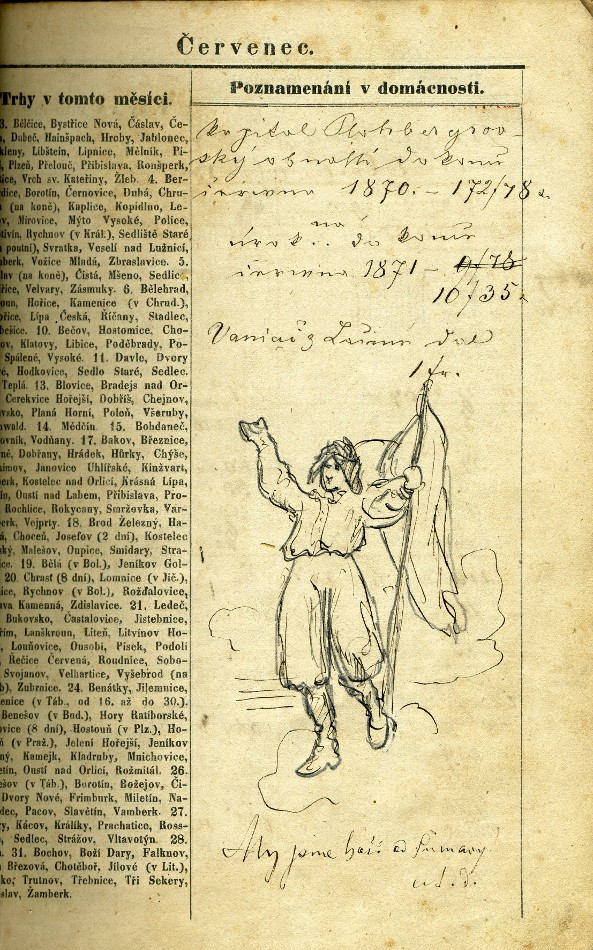 Červenec.
Trhy v tomto měsíci.
3. Bělčice, Bystřice Nová, Čáslav, Če-
, Dubeč, Hainšpach, Hroby, Jablonec,
kleny, Libštein, Lipnice, Mělník, Pí-
, Plzeň, Přelouč, Přibislava, Ronšperk,
ice, Vrch sv. Kateřiny, Žleb. 4. Ber-
dice, Borotín, Černovice, Dubá, Chru-
(na koně), Kaplice, Kopidlno, Le-
ov, Mirovice, Mýto Vysoké, Police,
tivín, Rychnov (v Král.), Sedliště Staré
poutní), Svratka, Veselí nad Lužnicí,
berk, Vožice Mladá, Zbraslavice. 5.
lav (na koně), Čistá, Mšeno, Sedlic,
řice, Velvary, Zásmuky. 6. Bělehrad,
oun, Hořice, Kamenice (v Chrud.),
ořice, Lípa Česká, Říčany, Stadlec,
bešice. 10. Bečov, Hostomice, Cho-
ov, Klatovy, Libice, Poděbrady, Po-
Spálené, Vysoké. 11. Davle, Dvory
é, Hodkovice, Sedlo Staré, Sedlec.
Teplá. 13. Blovice, Bradejs nad Or-
Cerekvice Hořejší, Dobříš, Chejnov,
vsko, Planá Horní, Poleň, Všeruby,
nwald. 14. Mědčín. 15. Bohdaneč,
ovník, Vodňany. 17. Bakov, Březnice,
né, Dobřany, Hrádek, Hůrky, Chýše,
nimov, Janovice Uhlířské, Kinžvart,
erk, Kostelec nad Orlicí, Krásná Lípa,
ín, Oustí nad Labem, Přibislava, Pro-
Rochlice, Rokycany, Smržovka, Var-
erk, Vejprty. 18. Brod Železný, Ha-
á, Choceň, Josefov (2 dni), Kostelec
ský, Malešov, Oupice, Smidary, Stra-
ice. 19. Bělá (v Bol.), Jeníkov Gol-
20. Chrast (8 dní), Lomnice (v Jič.),
ice, Rychnov (v Bol.), Rožďalovice,
ava Kamenná, Zdislavice. 21. Ledeč,
Bukovsko, Častalovice, Jistebnice,
řím, Lanškroun, Liteň, Litvínov Ho-
, Louňovice, Ousobí, Písek, Podolí
Řečice Červená, Roudnice, Sobo-
Svojanov, Velhartice, Vyšebrod (na
b), Zubrnice. 24. Benátky, Jilemnice,
enice (v Táb., od 16. až do 30.).
Benešov (v Bud.), Hory Ratibořské,
ovice (8 dní), Hostouň (v Plz.), Ho-
ň (v Praž.), Jelení Hořejší, Jeníkov
ný, Kamejk, Kladruby, Mnichovice,
etín, Oustí nad Orlicí, Rožmitál. 26.
ešov (v Táb.), Borotín, Božejov, Či-
Dvory Nové, Frimburk, Miletín, Na-
dec, Pacov, Slavětín, Vamberk. 27.
ry, Kácov, Králíky, Prachatice, Ross-
, Sedlec, Strážov, Vltavotýn. 28.
. 31. Bochov, Boží Dary, Falknov,
Březová, Chotěboř, Jílové (v Lit.),
ko, Trutnov, Třebnice, Tři Sekery,
slav, Žamberk.
Poznamenání v domácnosti.
Kapital
ský obnáší do konce
června 1870. – 172/78
na
úrok .. do konce
června 1871 – 9/75
10/35
Vaniař z dal
1 fr.
My jsme hoši od Šumavy
a t. d.